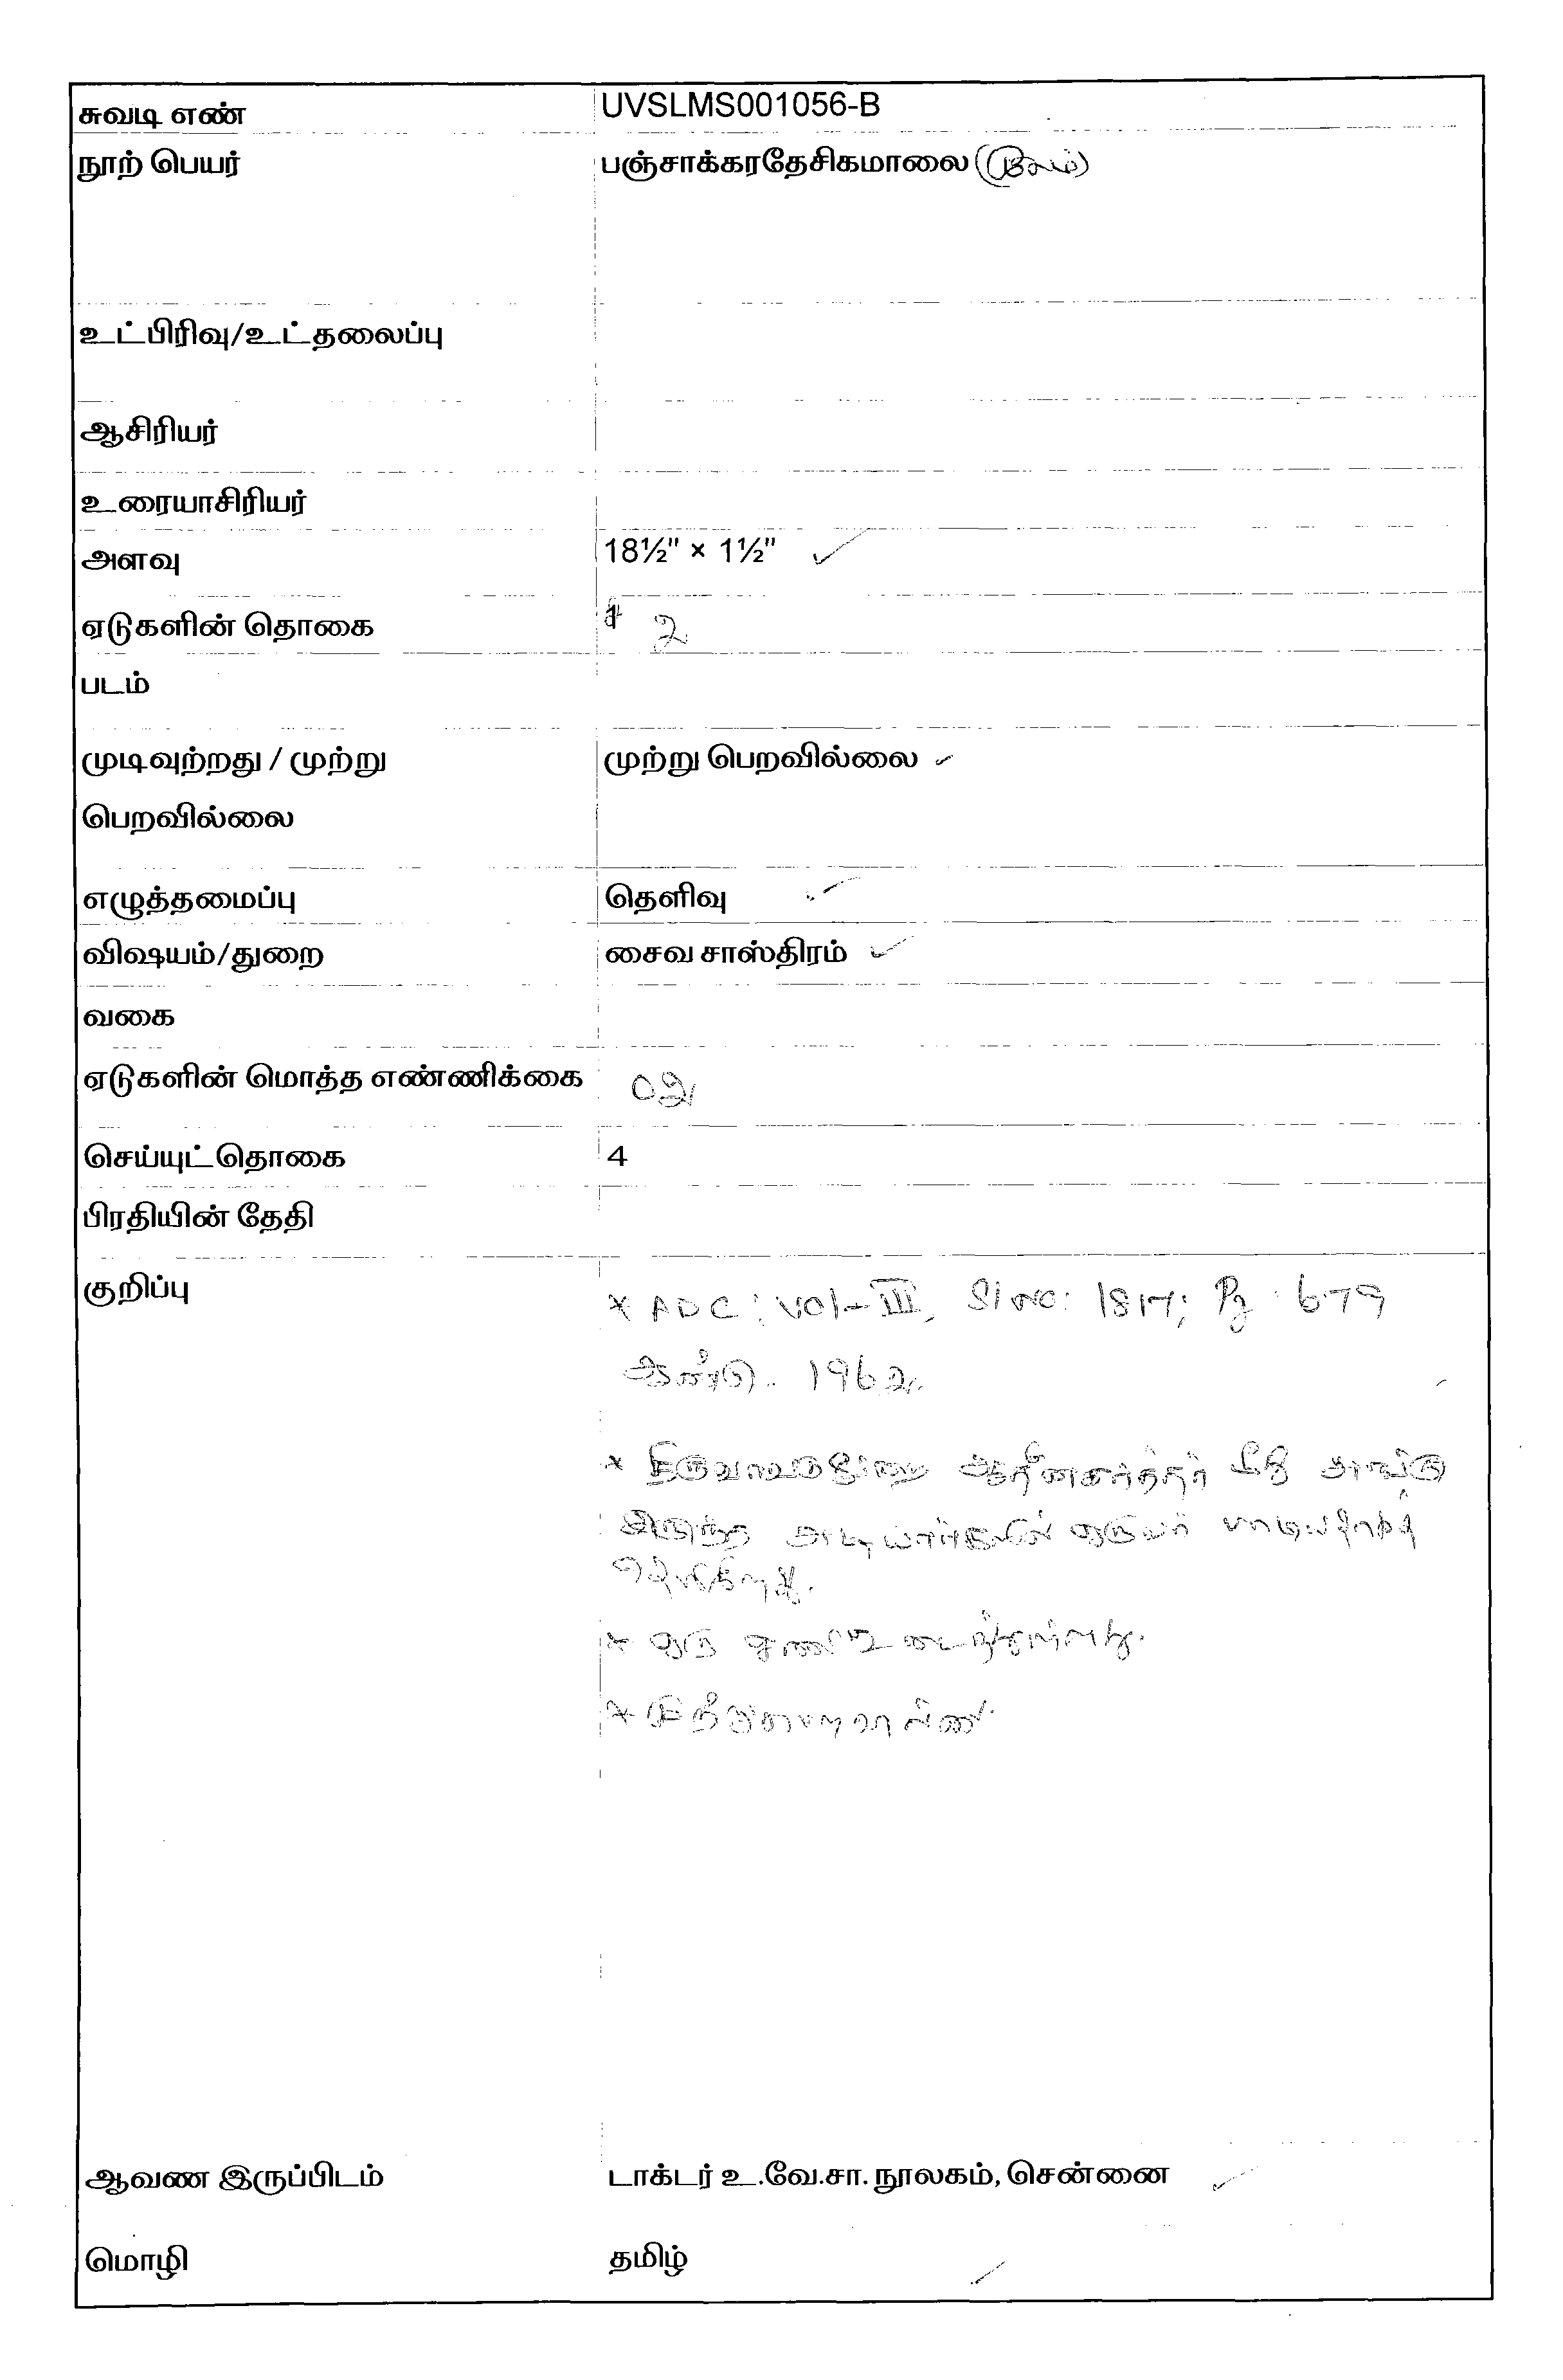 சுவடி எண் UVSLMS001056-B
நூற் பெயர் பஞ்சாக்கரதேசிகமாலை (மூலம்)
உட்பிரிவு/உட்தலைப்பு
ஆசிரியர்
உரையாசிரியர்
அளவு 18½" × 1½"
ஏடுகளின் தொகை 2
படம்
முடிவுற்றது / முற்று முற்று பெறவில்லை
பெறவில்லை
எழுத்தமைப்பு தெளிவு
விஷயம்/துறை சைவ சாஸ்திரம்
வகை
ஏடுகளின் மொத்த எண்ணிக்கை 02
செய்யுட்தொகை 4
பிரதியின் தேதி
குறிப்பு * ADC: Vol-III, Sl no: 1817; Pg: 679
ஆண்டு. 1962
* திருவாவடுதுறை ஆதீனகர்த்தர் மீது அங்கு
இருந்த அடியார்களில் ஒருவர் பாடியதாகத்
* ஒரு
*
ஆவண இருப்பிடம் டாக்டர் உ.வே.சா. நூலகம், சென்னை
மொழி தமிழ்